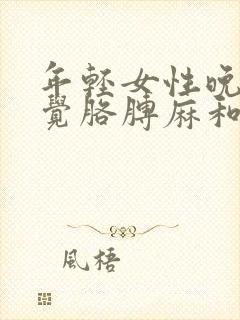 年轻女性晚
覺胳膊麻和
風梧